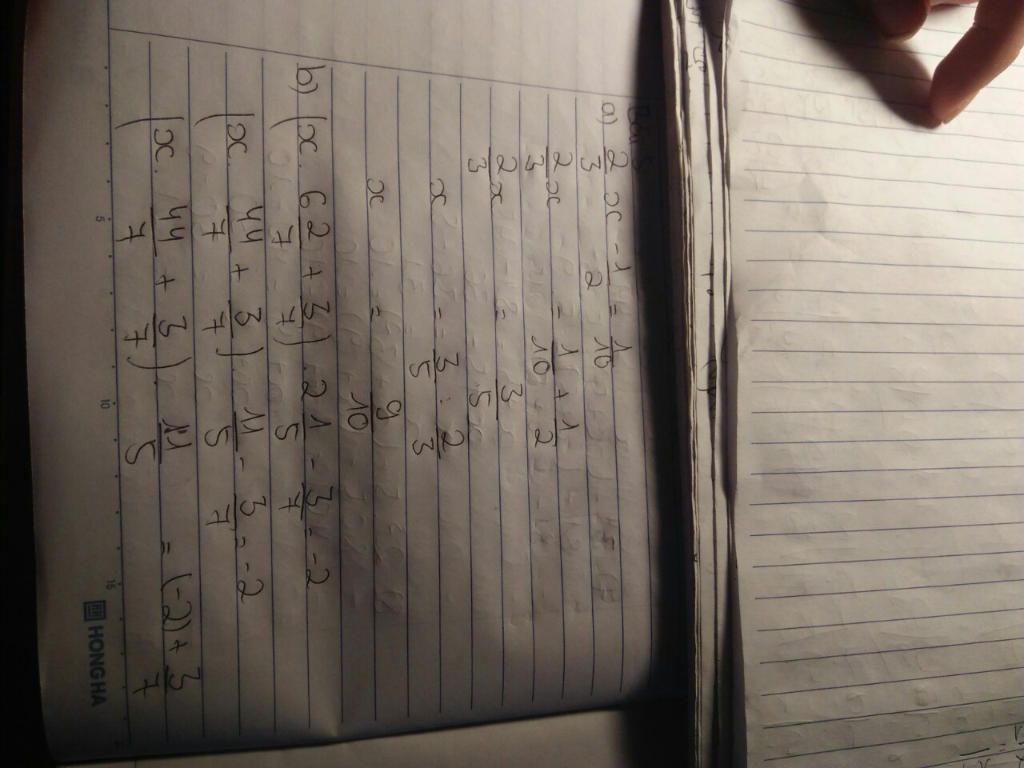 Bài 5
a) 2/3 x - 1/2 = 1/10
2/3 x = 1/10 + 1/2
2/3 x = 3/5
x = 3/5 : 2/3
x = 9/10
b) (x. 6 2/7 + 3/7) . 2 1/5 - 3/7 = -2
(x. 44/7 + 3/7) . 11/5 - 3/7 = -2
(x. 44/7 + 3/7) . 11/5 = (-2) + 3/7
5 10 15
HONG HA